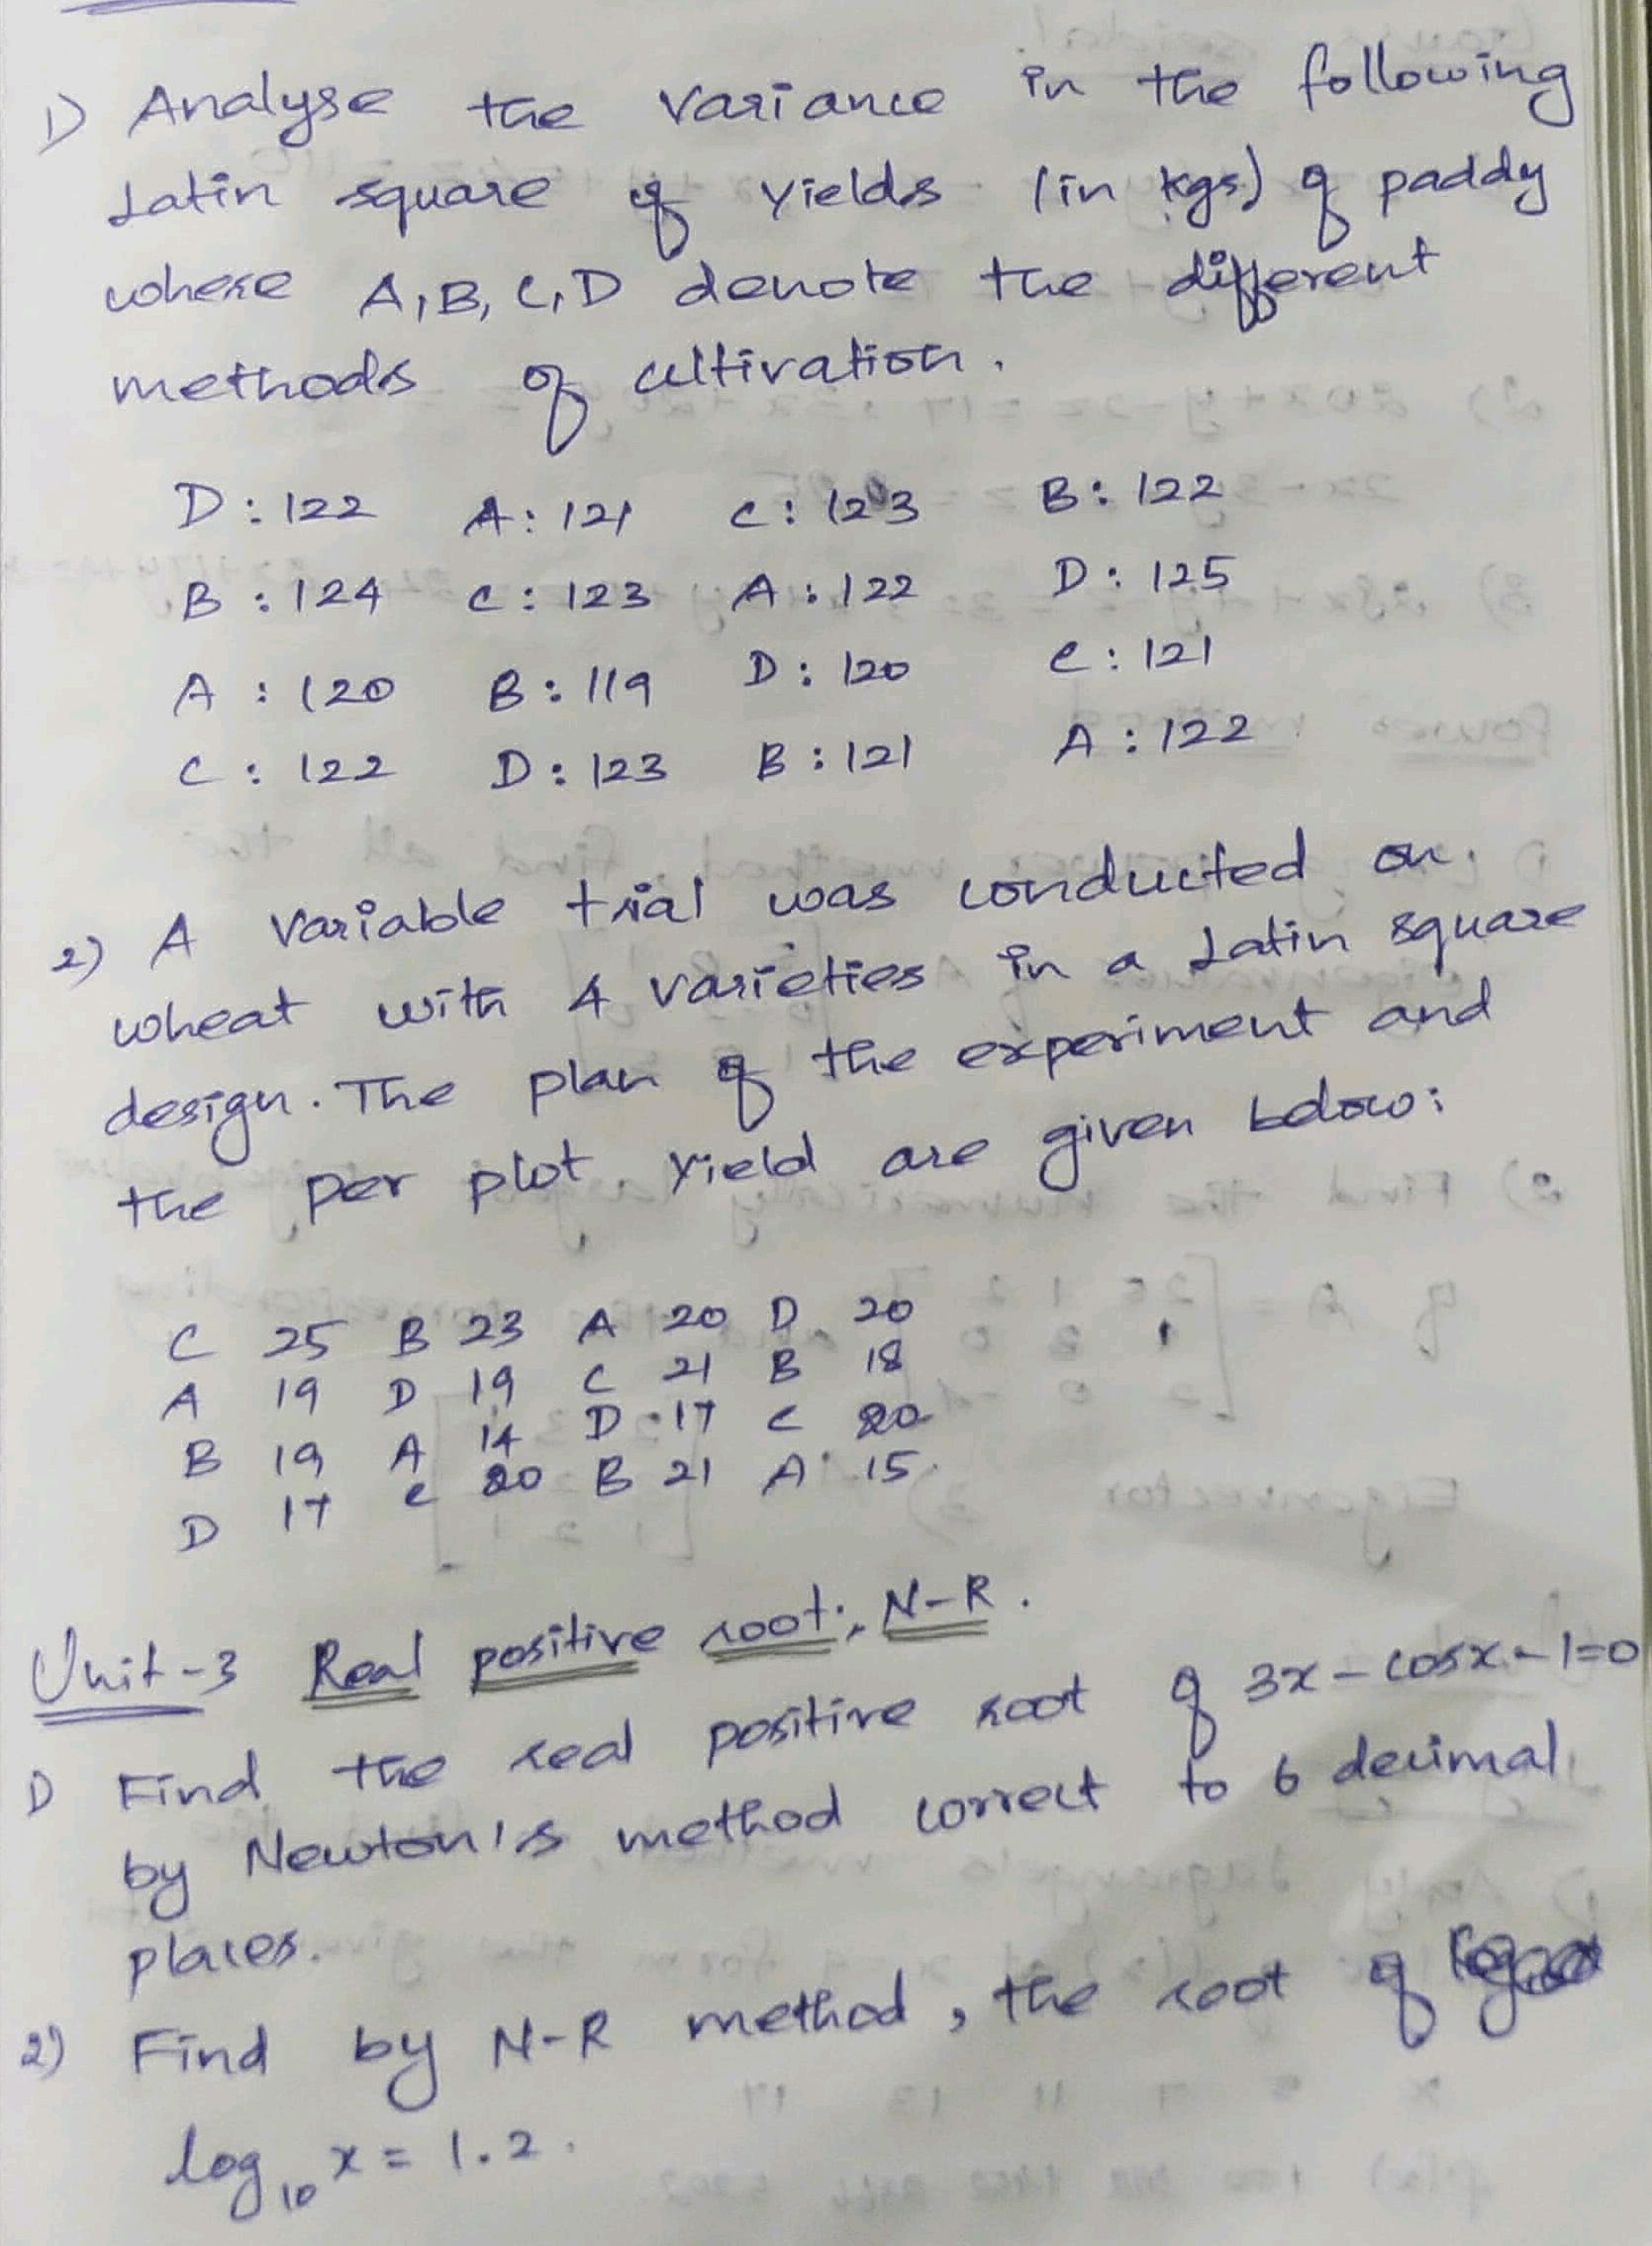 1) Analyse the Variance in the following
Latin square of Yields (in kgs) of paddy
where A, B, C, D denote the different
methods of cultivation.
D : 122 A : 121 C : 123 B : 122
B : 124 C : 123 A : 122 D : 125
A : 120 B : 119 D : 120 C : 121
C : 122 D : 123 B : 121 A : 122
2) A variable trial was conducted on
wheat with 4 varieties in a Latin square
design. The plan of the experiment and
the per plot yield are given below:
C 25 B 23 A 20 D 20
A 19 D 19 C 21 B 18
B 19 A 14 D 17 C 20
D 17 C 20 B 21 A 15
Unit-3 Real positive root: N-R.
1) Find the real positive root of 3x - cosx - 1=0
by Newton's method correct to 6 decimal
places.
2) Find by N-R method, the root of
log10 x = 1.2.